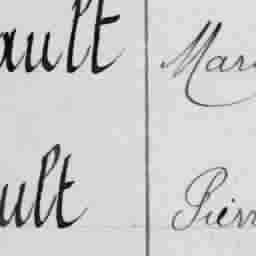 ault Mari
ult Pierr